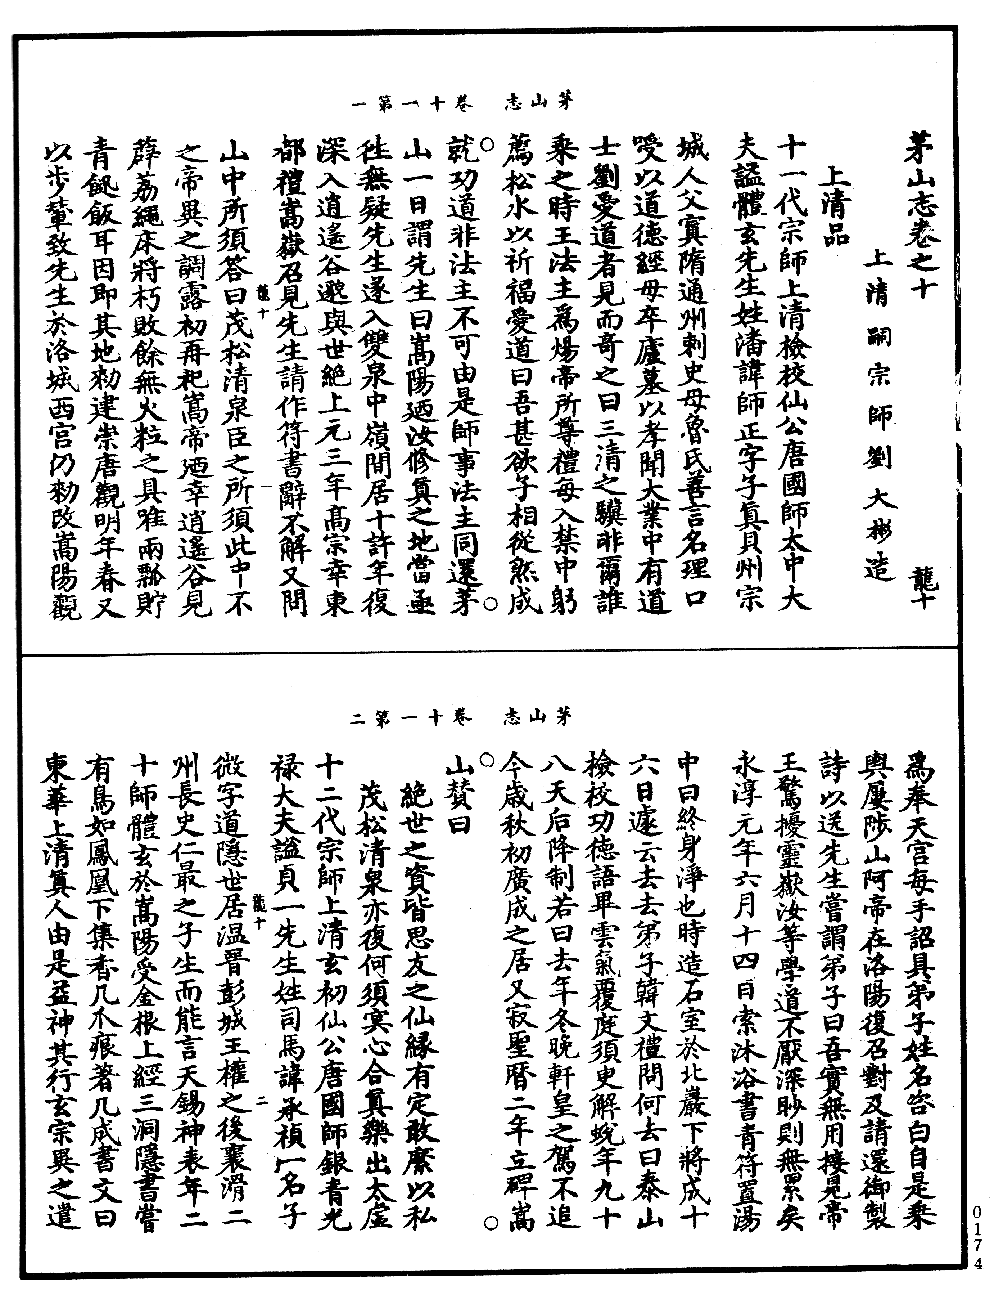 茅山志　卷十一第一
茅山志卷之十　龍十
上清嗣宗師劉大彬造
上清品
十一代宗師上清檢校仙公唐國師太中大
夫謚體玄先生姓潘諱師正字子真貝州宗
城人父寘隋通州刺史母魯氏善言名理口
噯以道德經母卒廬墓以孝聞大業中有道
士劉愛道者見而奇之曰三清之驥非爾誰
乘之時王法主為煬帝所尊禮每入禁中躬
薦松水以祈福愛道曰吾甚欲子相從然成
就功道非法主不可由是師事法主同還茅
山一日謂先生曰嵩陽迺汝修真之地當亟
徃無疑先生遂入雙泉中嶺間居十許年復
深入逍遙谷邈與世絕上元三年高宗幸東
都禮嵩嶽召見先生請作符書辭不解又問
山中所須答曰茂松清泉臣之所須此中不
龍十　一
之帝異之調露初再祀嵩帝迺幸逍遙谷見
薜荔繩床將朽敗餘無火粒之具唯兩瓢貯
青飿飯耳因即其地勑建崇唐觀明年春又
以步輦致先生於洛城西宮仍勑改嵩陽觀
茅山志　卷十一第二
為奉天宮每手詔具弟子姓名咨白自是乘
輿屢陟山阿帝在洛陽復召對及請還御製
詩以送先生嘗謂弟子曰吾實無用接見帝
王驚擾靈嶽汝等學道不厭深眇則無累矣
永淳元年六月十四日索沐浴書青符置湯
中曰終身淨也時造石室於北巖下將成十
六日遽云去去弟子韓文禮問何去曰泰山
檢校功德語畢雲氣覆庭須臾解蛻年九十
八天后降制若曰去年冬晚軒皇之駕不追
今歲秋初廣成之居又寂聖曆二年立碑嵩
山贊曰
絶世之資皆思友之仙緣有定敢縻以私
茂松清泉亦復何須冥心合真樂出太虛
十二代宗師上清玄初仙公唐國師銀青光
祿大夫謚貞一先生姓司馬諱承禎一名子
龍十　二
微字道隱世居温晋彭城王權之後襄滑二
州長史仁最之子生而能言天錫神表年二
十師體玄於嵩陽受金根上經三洞隱書嘗
有鳥如鳳凰下集香几爪痕著几成書文曰
東華上清真人由是益神其行玄宗異之遣
0174